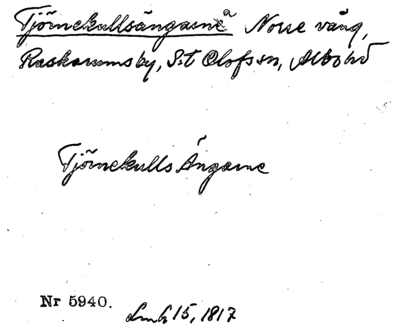 Tjörnekullsängarne Norre väng,
Raskarumsby, S:t Olofs sn, Albo hd
Tjörnekulls Ängarne
Nr 5940. Lmk 15, 1817